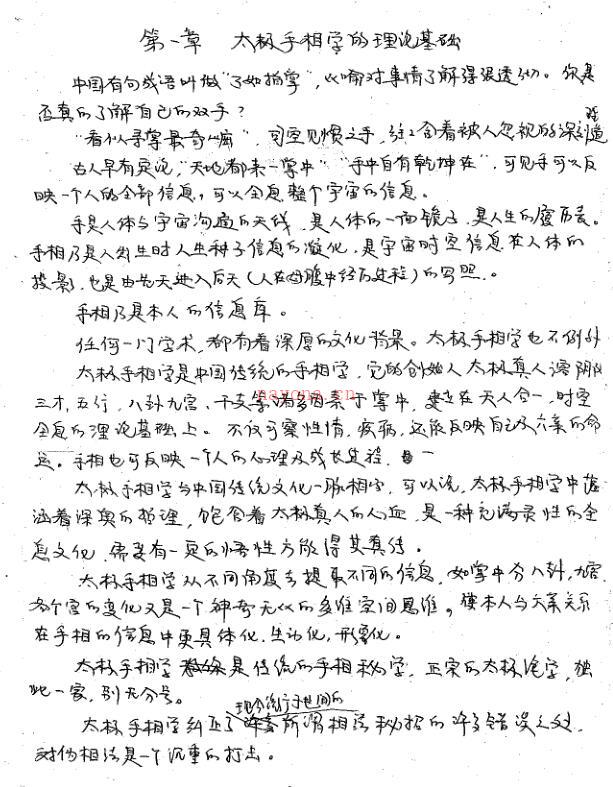 第一章 太极手相学的理论基础
中国有句成语叫做"了如指掌",比喻对事情了解得很透彻。你是
否真的了解自己的双手?
"看似寻常最奇崛",司空见惯之手,往往含着被人忽视的深刻
古人早有定论,"天地都来一掌中""手中自有乾坤在",可见手可以反
映一个人的全部信息,可以全息整个宇宙的信息。
手是人体与宇宙沟通的天线,是人体的一面镜子,是人生的履历表。
手相乃是人出生时人生种子信息的凝化,是宇宙时空信息在人体的
投影,也是由先天进入后天(人在母腹中经历进程)的写照。
手相乃是本人的信息库。
任何一门学术,都有着深厚的文化背景。太极手相学也不例外
太极手相学是中国传统的手相学,它的创始人太极真人将阴阳
三才,五行,八卦九宫、干支等诸多因素于掌中,建立在天人合一,时空
全息的理论基础上。不仅可察性情,疾病,还能反映自己及六亲的命
运。手相也可反映一个人的心理及成长进程,
太极手相学与中国传统文化一脉相承,可以说,太极手相学中蕴
涵着深奥的哲理,饱含着太极真人的心血,是一种充满灵性的全
息文化,需要有一定的悟性方能得其真传。
太极手相学从不同角度去提取不同的信息,如掌中分八卦,九宫
各个宫的变化又是一个神奇无比的多维空间思维。使本人与六亲关系
在手相的信息中更具体化,生动化,形象化。
太极手相学是传统的手相秘学,正宗的太极绝学,独
此一家,别无分号。
现今流行于世间的
太极手相学纠正了所谓相法秘招的许多错误之处,
对伪相法是一个沉重的打击。
nayona.cn